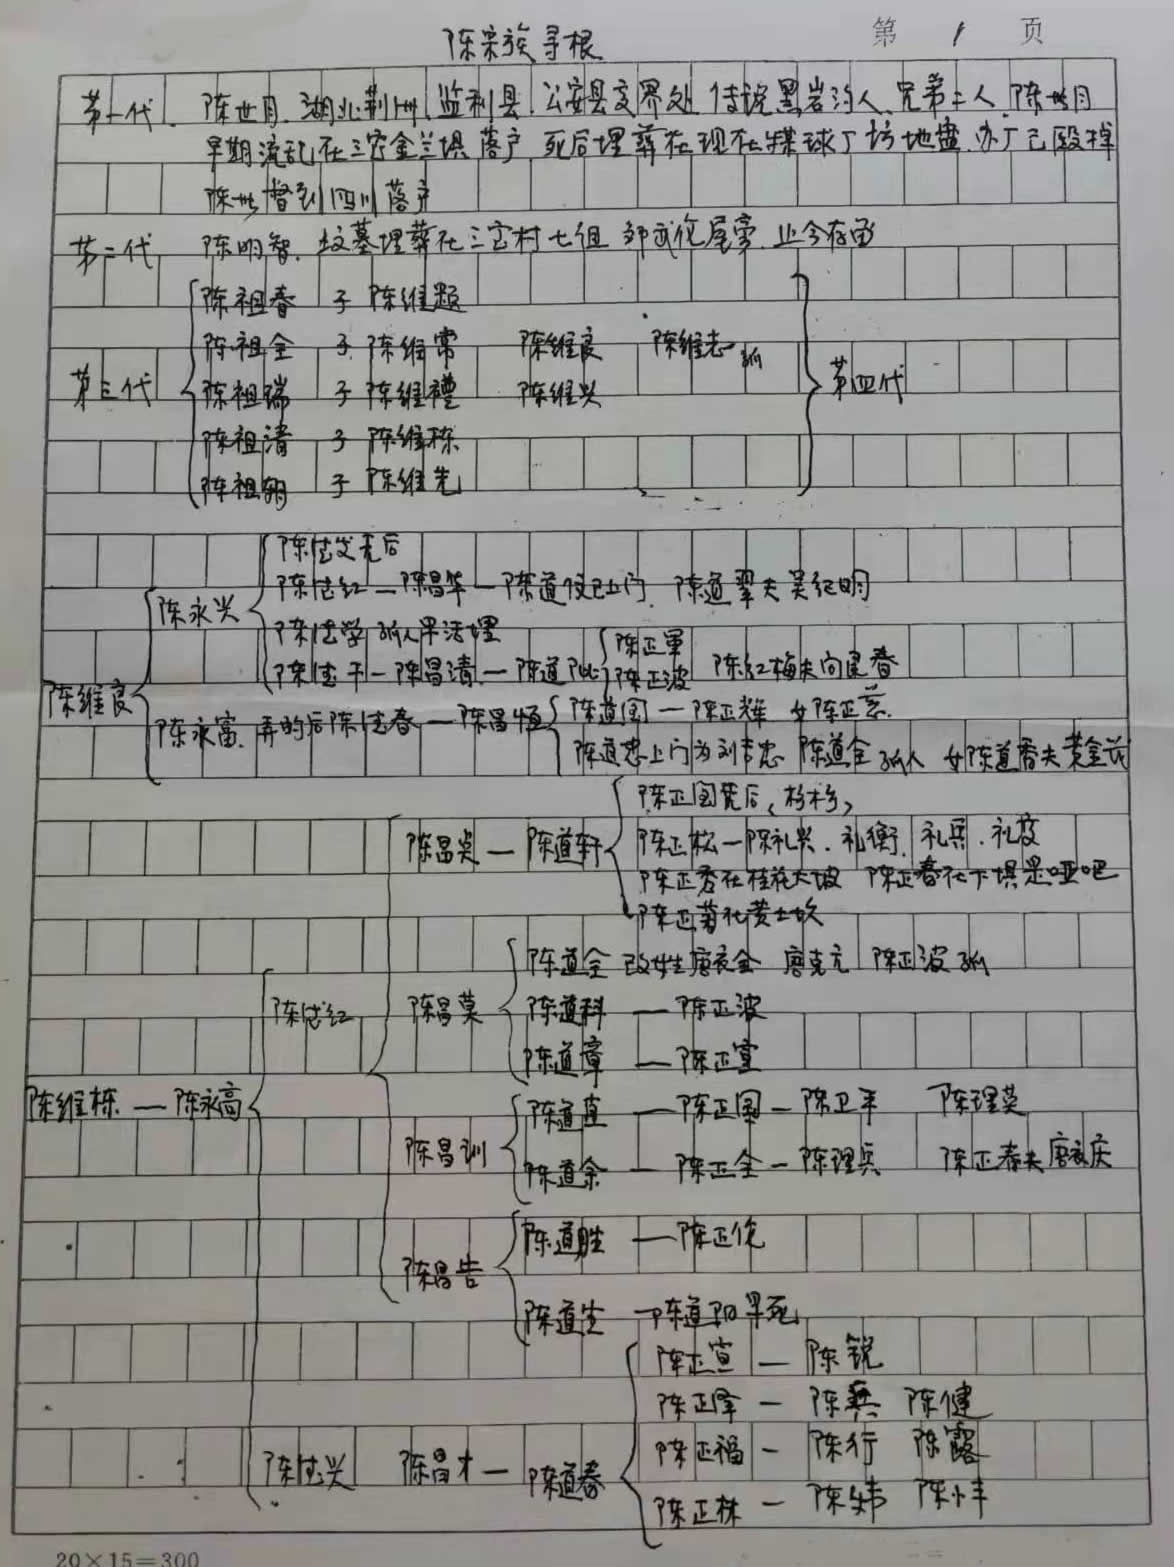 第 1 页
陈宗族寻根
第一代. 陈世月. 湖北荆州 监利县. 公安县交界处 传说黑岩沟人. 兄弟二人 陈世月
早期流乱在三宝金兰坝落户 死后埋葬在现在煤球厂坊地盘 办厂已毁掉
陈世督到四川落户
第二代 陈明智. 坟墓埋葬在三宝村七组 邹武伦屋旁. 止今存在
陈祖春 子 陈维题
陈祖全 子 陈维常 陈维良 陈维志 孤
第三代 陈祖瑞 子 陈维礼 陈维兴 第四代
陈祖清 子 陈维栋
陈祖朝 子 陈维先
陈德文无后
陈德红 — 陈昌华 — 陈道 上门. 陈道翠夫吴纪明
陈永兴
陈德学 孤人早活埋
陈正军
陈德干 — 陈昌清 — 陈道 陈正波 陈红梅夫向良春
陈维良
陈永富. 弄的后陈德春 — 陈昌恒 陈道国 — 陈正辉 女陈正
陈道忠上门为刘 忠 陈道全 孤人 女陈道香夫黄金
陈正国荒后、杉杉、
陈昌吴 — 陈道轩 陈正松 — 陈礼兴. 礼衡. 礼兵. 礼
陈正香在桂花大坡 陈正春在下坝是哑吧
陈正菊在黄土坎
陈道全 改姓唐 金 唐克元 陈正波 孤
陈德红 陈昌莫 陈道科 — 陈正波
陈道章 — 陈正宣
陈维栋 — 陈永高
陈道直 — 陈正国 — 陈卫平 陈理英
陈昌训
陈道余 — 陈正全 — 陈理兵 陈正春夫唐 庆
陈道胜 — 陈正伦
陈昌告
陈道生 — 陈道阳早死
陈正宣 — 陈锐
陈正泽 — 陈兵 陈健
陈正福 — 陈行 陈露
陈德兴 陈昌才 — 陈道春
陈正林 — 陈炜 陈小丰
20×15=300